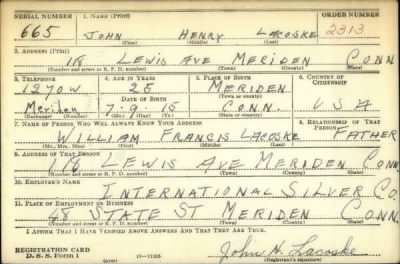 SERIAL NUMBER 1. NAME (Print) ORDER NUMBER
665 JOHN HENRY LACOSKE 2313
(First) (Middle) (Last)
2. ADDRESS (Print)
18 LEWIS AVE MERIDEN CONN.
(Number and street or R. F. D. number) (Town) (County) (State)
3. TELEPHONE 4. AGE IN YEARS 5. PLACE OF BIRTH 6. COUNTRY OF CITIZENSHIP
1270W 25 MERIDEN
DATE OF BIRTH (Town or county)
Meriden 7-9-15 CONN. USA
(Exchange) (Mo.) (Day) (Yr.) (State or country)
7. NAME OF PERSON WHO WILL ALWAYS KNOW YOUR ADDRESS 8. RELATIONSHIP OF THAT PERSON
WILLIAM FRANCIS LACOSKE FATHER
(Mr., Mrs., Miss) (First) (Middle) (Last)
9. ADDRESS OF THAT PERSON
18 LEWIS AVE MERIDEN CONN.
(Number and street or R. F. D. number) (Town) (County) (State)
10. EMPLOYER'S NAME
INTERNATIONAL SILVER CO.
11. PLACE OF EMPLOYMENT OR BUSINESS
48 STATE ST MERIDEN CONN.
(Number and street or R. F. D. number) (Town) (County) (State)
I AFFIRM THAT I HAVE VERIFIED ABOVE ANSWERS AND THAT THEY ARE TRUE.
REGISTRATION CARD
D. S. S. Form 1 (over) John H. Lacoske
(Registrant's signature)